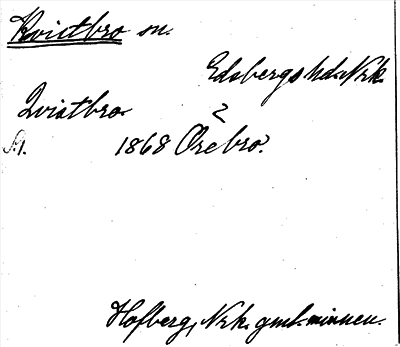 Kvistbro sn.
Edsbergs hd. Nrk.
Qvistbro
2
S. 1. 1868 Örebro.
Hofberg, Nrk. gml. minnen.